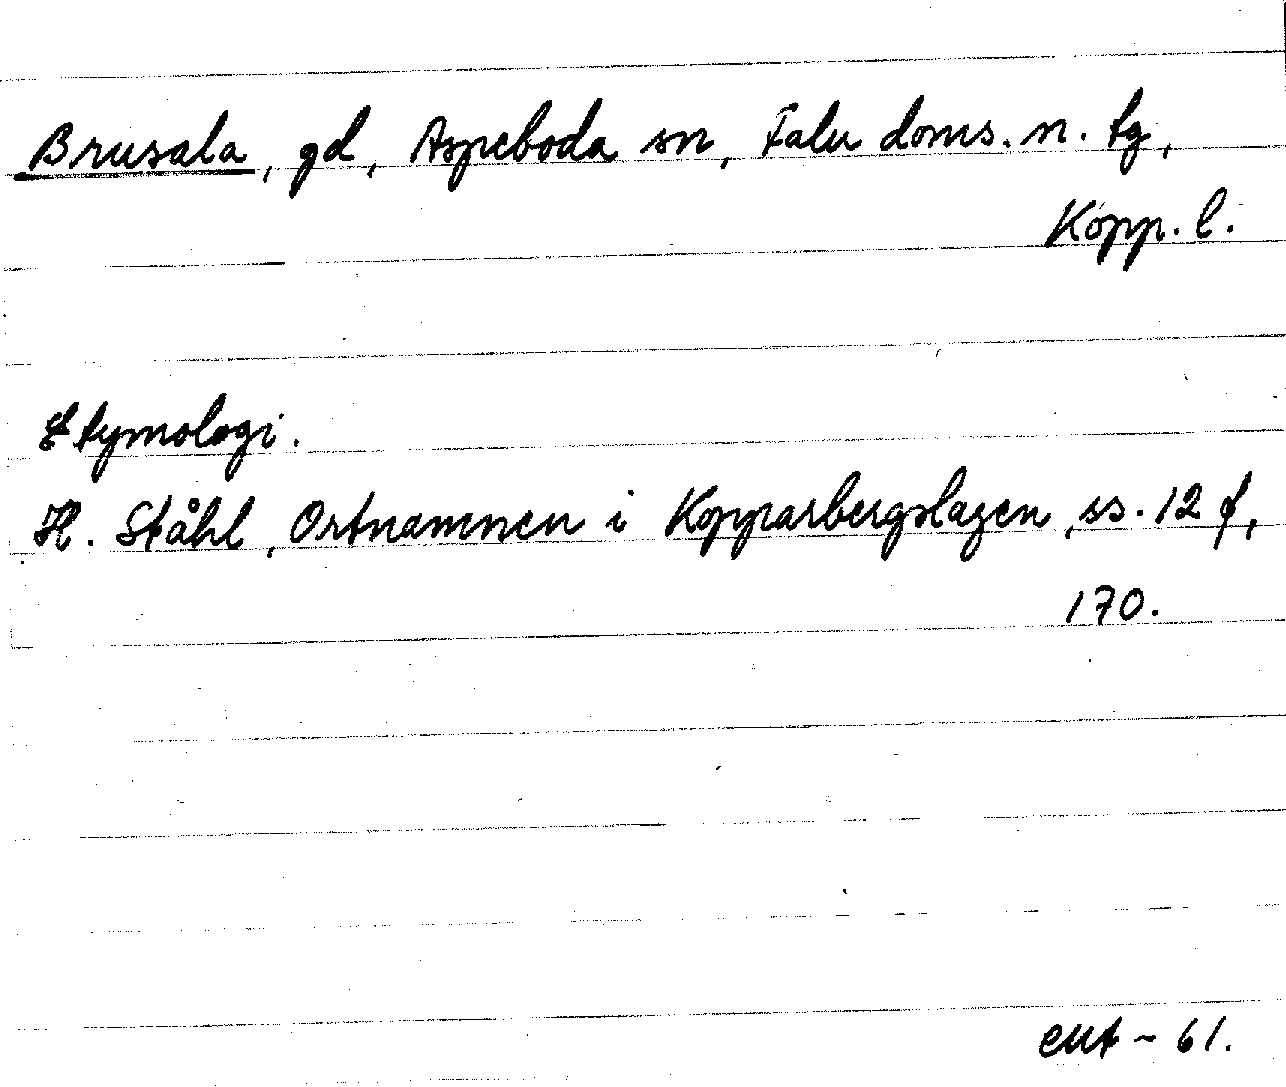 Brusala, gd, Aspeboda sn, Falu doms. n. tg,
Kopp. l.
Etymologi.
H. Ståhl, Ortnamnen i Kopparbergslagen, ss. 12 f,
170.
- 61.